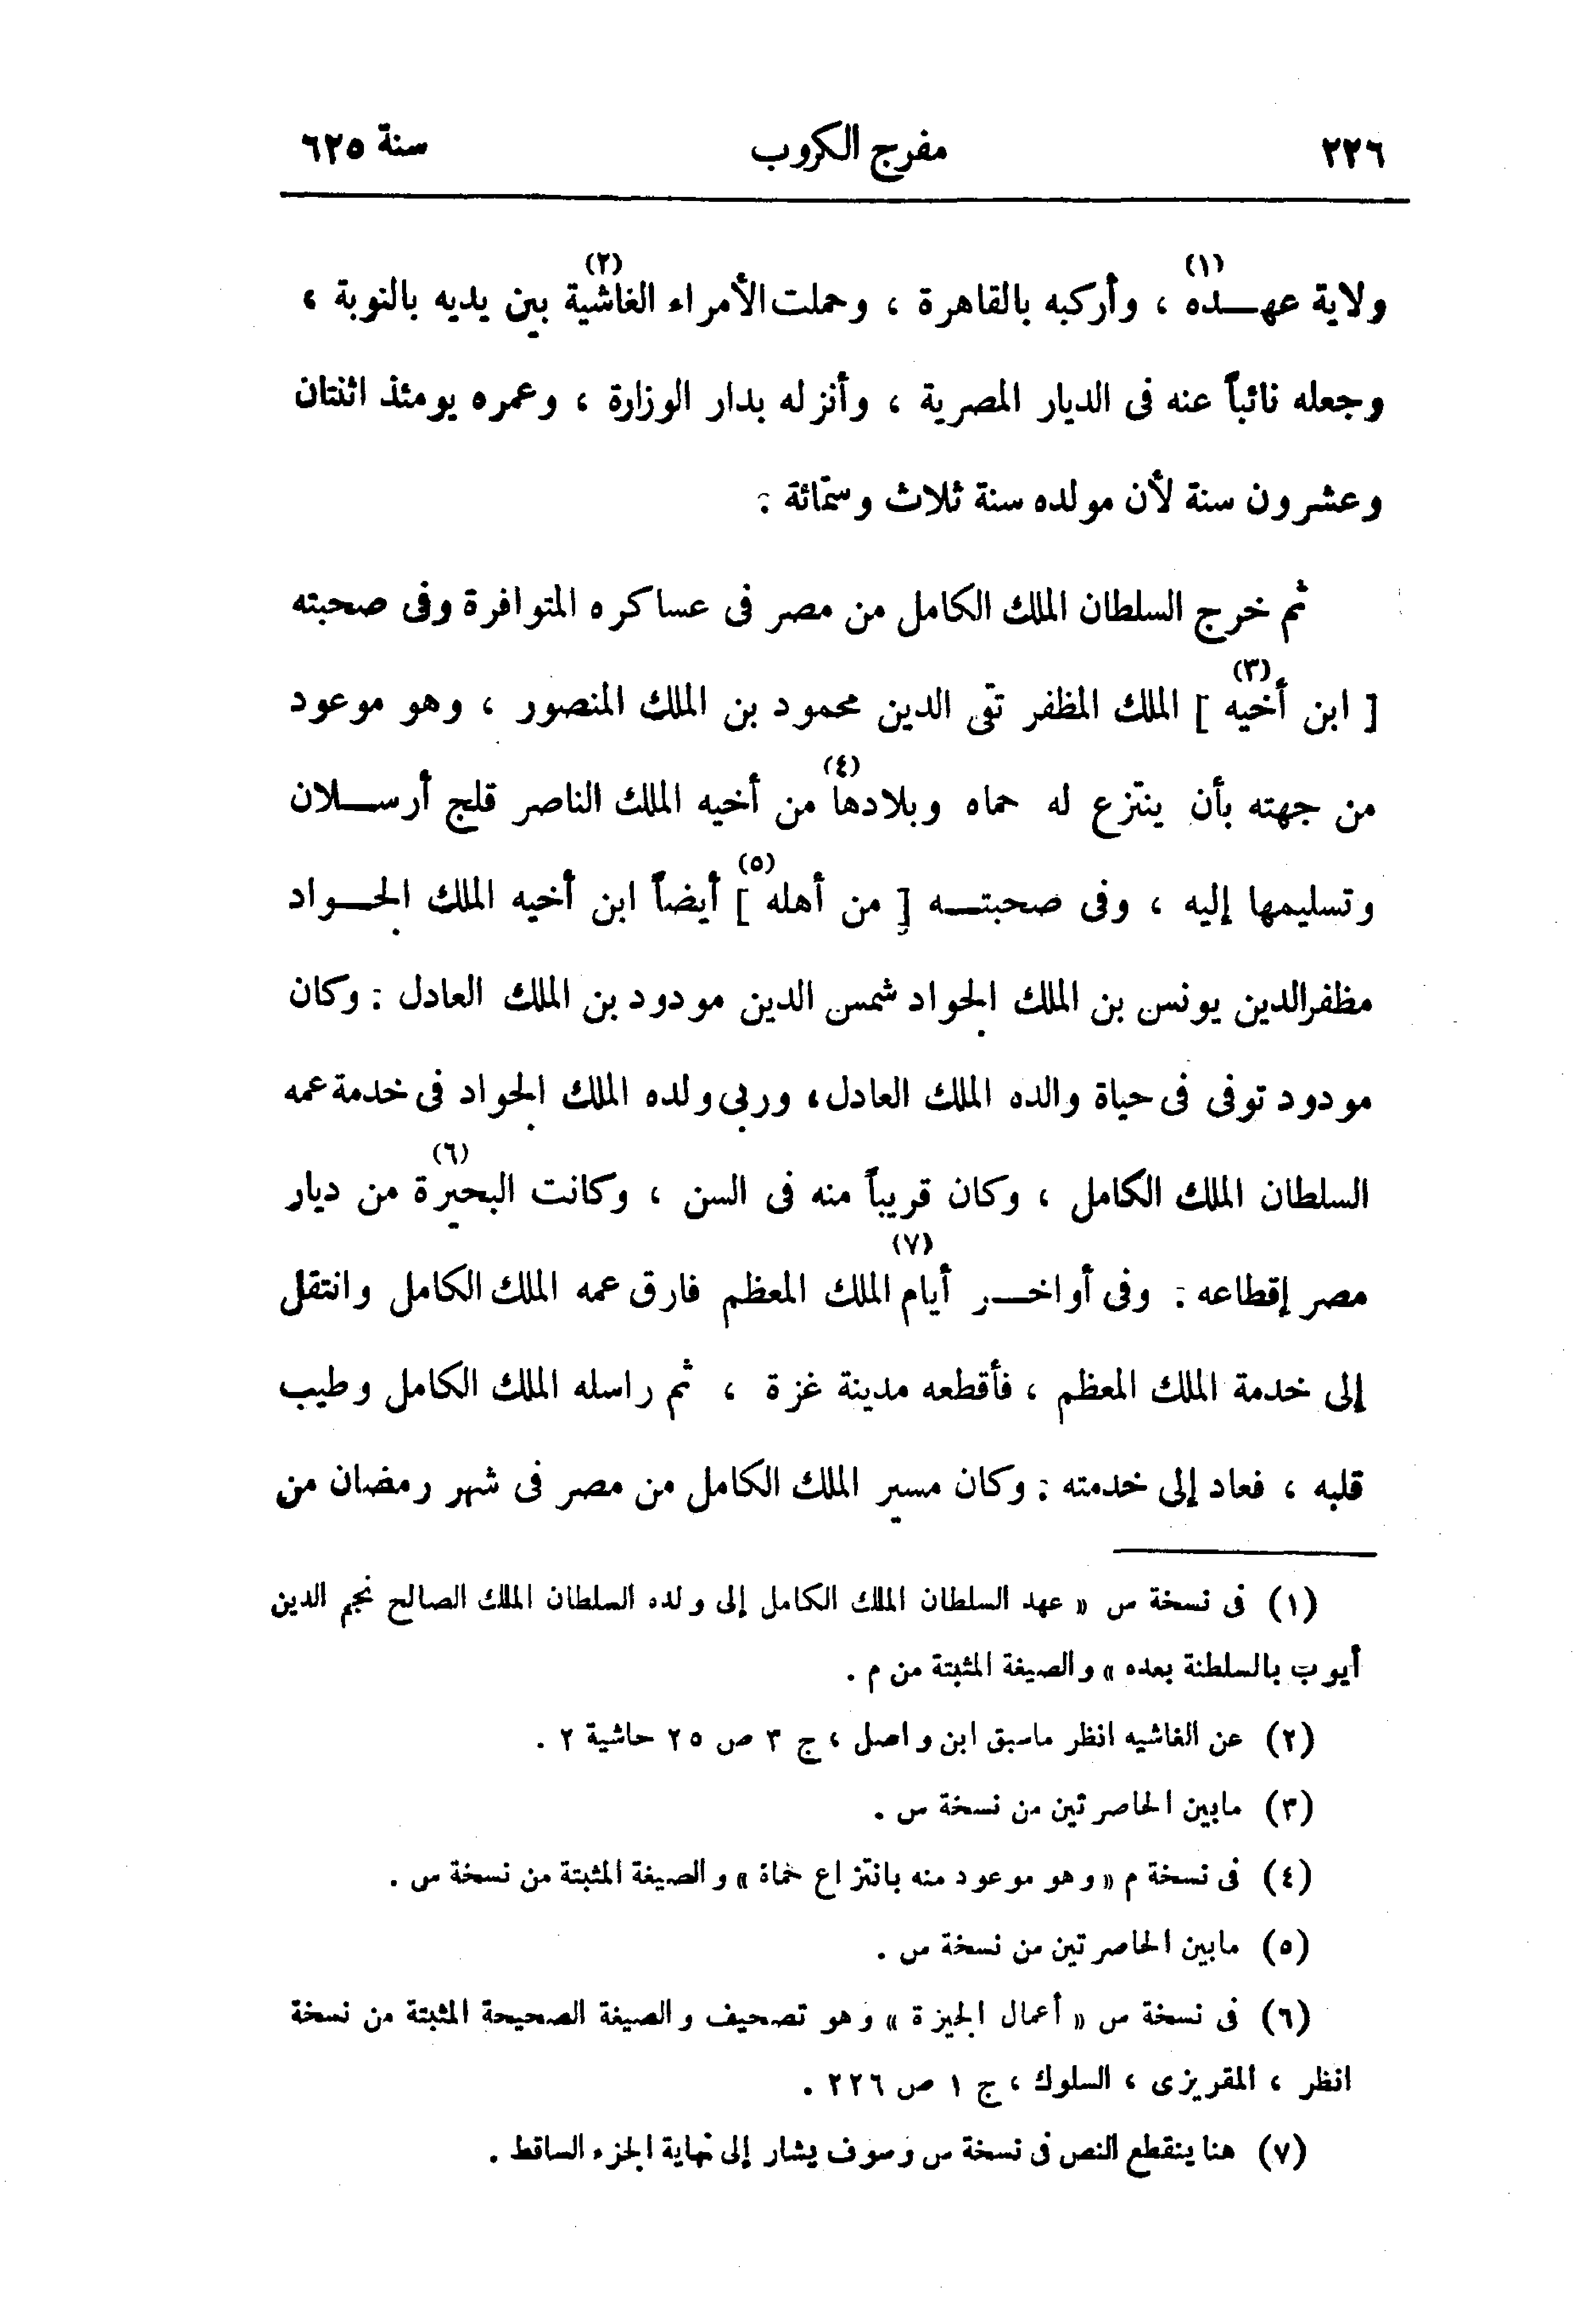 ٢٢٦ مفرج الكروب سنة ٦٢٥
ولاية عهـــده (١) ، وأركبه بالقاهرة ، وحملت الأمراء الغاشية (٢) بين يديه بالنوبة ،
وجعله نائباً عنه فى الديار المصرية ، وأنزله بدار الوزارة ، وعمره يومئذ اثنتان
وعشرون سنة لأن مولده سنة ثلاث وستمائة .
ثم خرج السلطان الملك الكامل من مصر فى عساكره المتوافرة وفى صحبته
[ ابن أخيه (٣) ] الملك المظفر تقى الدين محمود بن الملك المنصور ، وهو موعود
من جهته بأن ينتزع له حماه وبلادها (٤) من أخيه الملك الناصر قلج أرســلان
وتسليمها إليه ، وفى صحبتـــه [ من أهله (٥) ] أيضاً ابن أخيه الملك الجـــواد
مظفر الدين يونس بن الملك الجواد شمس الدين مودود بن الملك العادل . وكان
مودود توفى فى حياة والده الملك العادل ، وربى ولده الملك الجواد فى خدمة عمه
السلطان الملك الكامل ، وكان قريباً منه فى السن ، وكانت البحيرة (٦) من ديار
مصر إقطاعه . وفى أواخـــر أيام (٧) الملك المعظم فارق عمه الملك الكامل وانتقل
إلى خدمة الملك المعظم ، فأقطعه مدينة غزة ، ثم راسله الملك الكامل وطيب
قلبه ، فعاد إلى خدمته . وكان مسير الملك الكامل من مصر فى شهر رمضان من
(١) فى نسخة س « عهد السلطان الملك الكامل إلى ولده السلطان الملك الصالح نجم الدين
أيوب بالسلطنة بعده » والصيغة المثبتة من م .
(٢) عن الغاشيه انظر ماسبق ابن واصل ، ج ٣ ص ٢٥ حاشية ٢ .
(٣) مابين الحاصرتين من نسخة س .
(٤) فى نسخة م « وهو موعود منه بانتزاع حماة » والصيغة المثبتة من نسخة س .
(٥) مابين الحاصرتين من نسخة س .
(٦) فى نسخة س « أعمال الجيزة » وهو تصحيف والصيغة الصحيحة المثبتة من نسخة
انظر ، المقريزى ، السلوك ، ج ١ ص ٢٢٦ .
(٧) هنا ينقطع النص فى نسخة س وسوف يشار إلى نهاية الجزء الساقط .